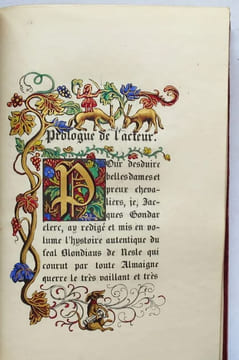 Prologue de l'acteur.
Pour desduire
belles dames et
preux cheva-
liers, je, Jac-
ques Gondar
clerc, ay redigé et mis en vo-
lume l'hystoire autentique du
feal Blondiaus de Nesle qui
courut par toute Almaigne
querre le très vaillant et très